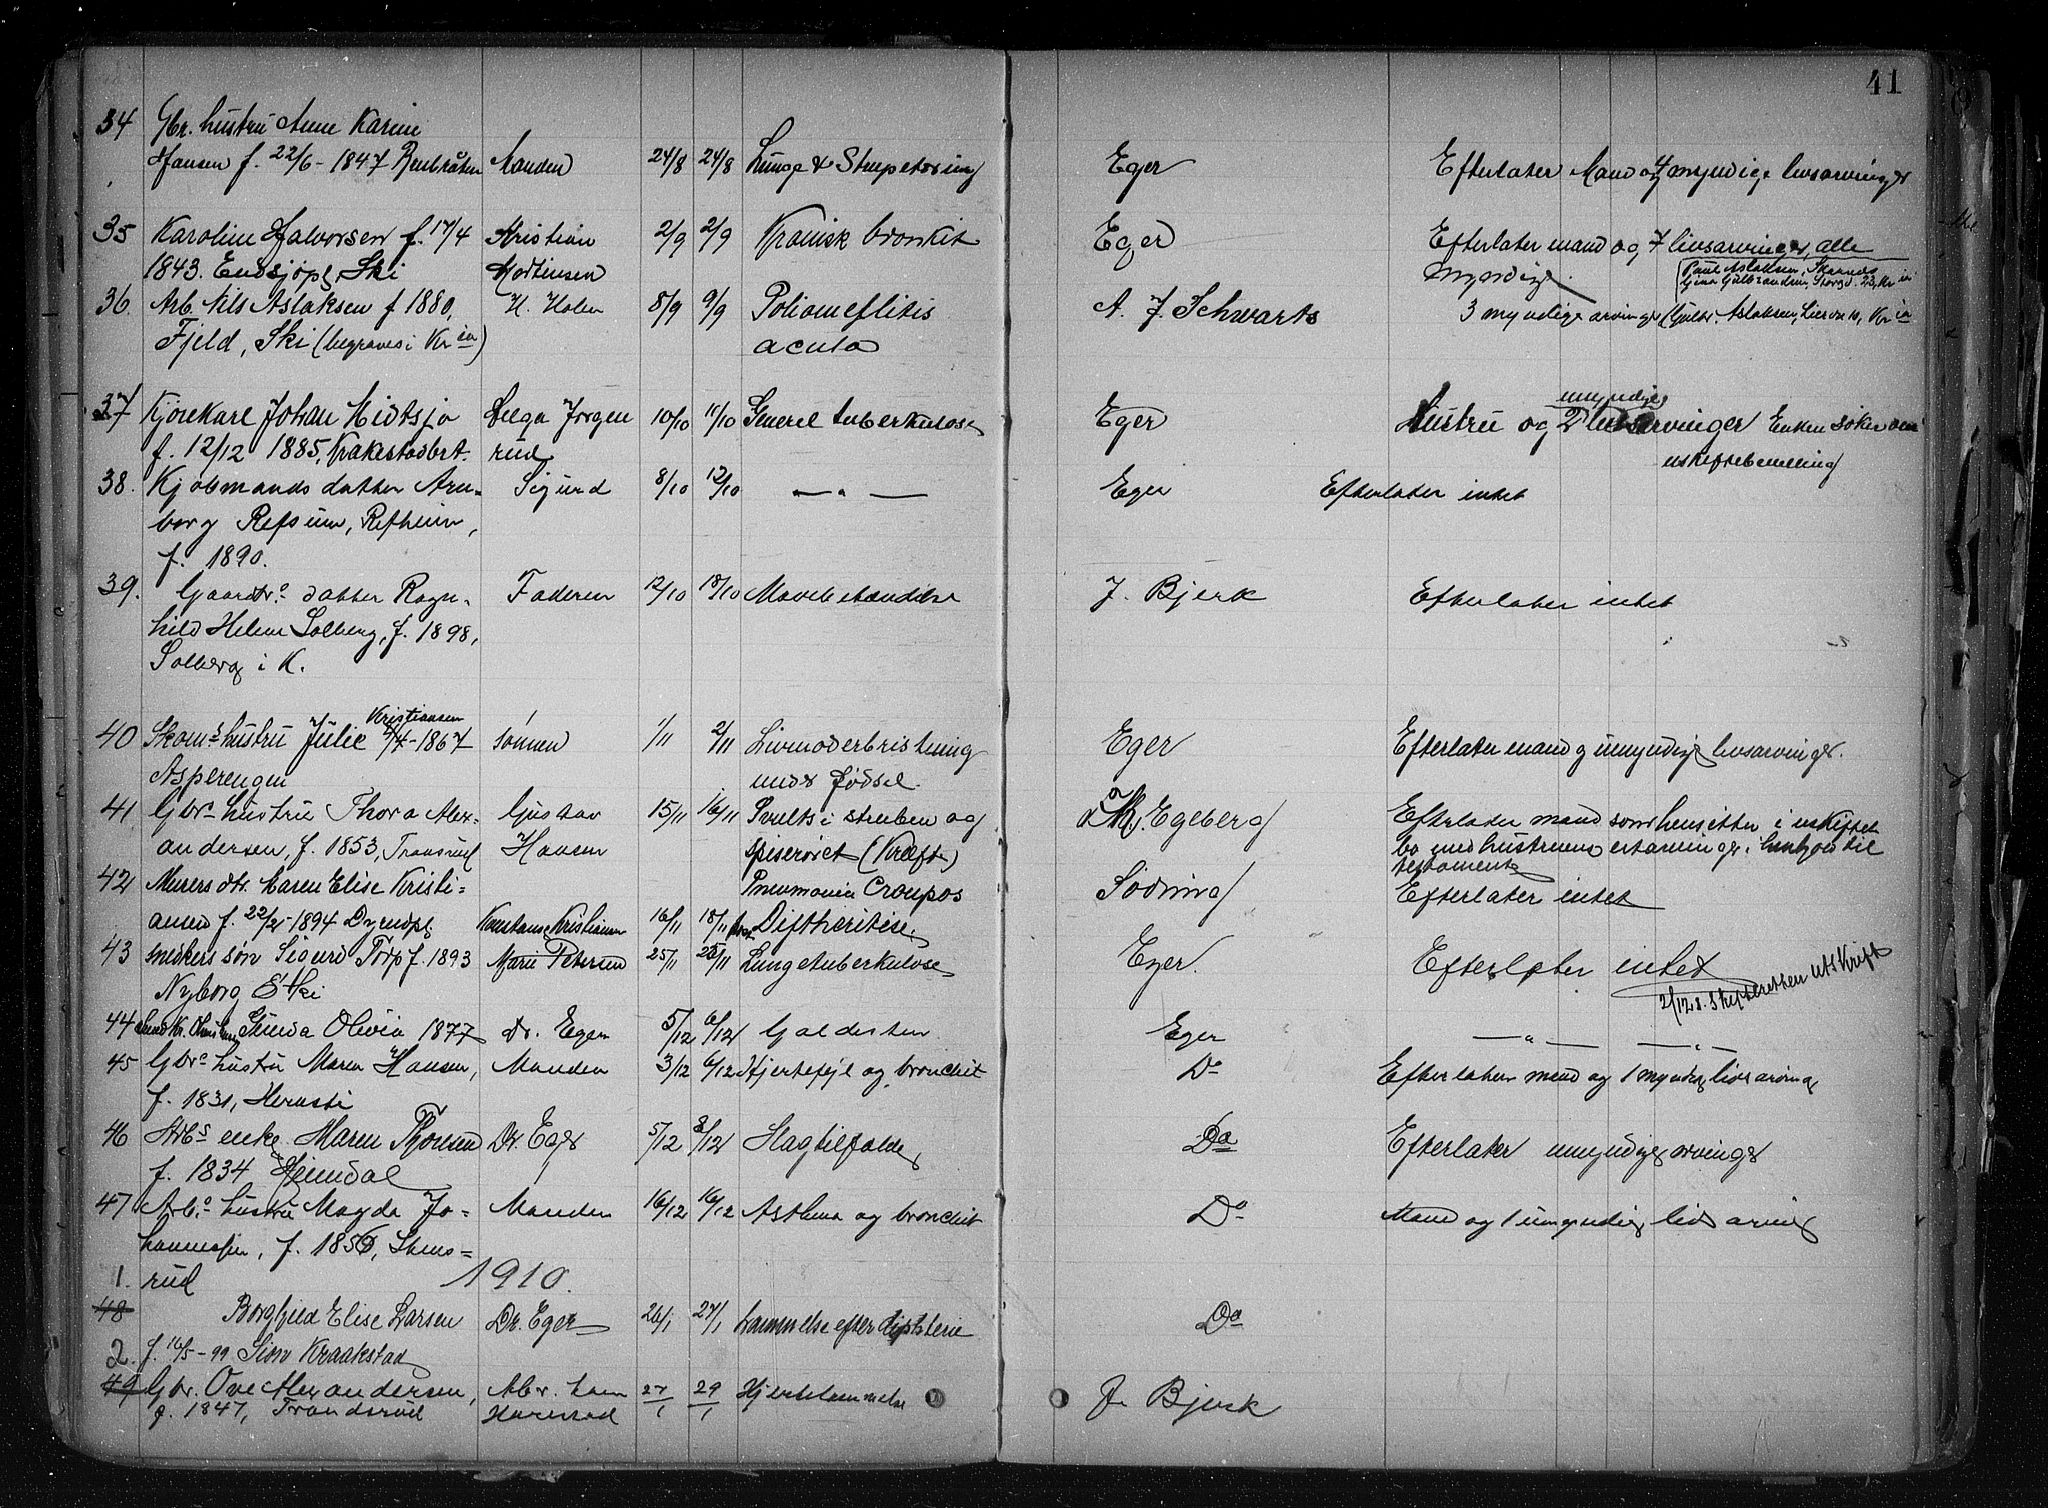 41
34 Gbr. hustru Anne Karine
Hansen f. 22/6 - 1847 Manden 24/8 24/8 Lunge & Strupetæring Eger Efterlater Mand og 4 myndige livsarvinger
35 Karoline Halvorsen f. 17/4 Kristian 2/9 2/9 Kronisk bronkit Eger Efterlater mand og 7 livsarvinger, alle
1843. Endsjøpl. Ski Mortinsen myndige.
Paul Aslaksen,
36. Arb. Nils Aslaksen f 1880, H. Holen 8/9 9/9 Poliomeflitis A. J. Schwarts 3 myndige arvinger (Gulbr. Aslaksen, Kr ia
Fjeld, Ski (begraves i Kr ia) acuta
37 Kjørekarl Johan Midtsjø Helga Jørgen 10/10 11/10 Generel tuberkulose Eger Hustru og 2 umyndige livsarvinger Enken søker om
f. 12/12 1885, Krakstadbrt. rud uskiftebevilling
38. Kjøbmands datter Arn- Sigurd 8/10 12/10 — " — Eger Efterlater intet
borg Refsum, Refheim,
f. 1890.
39. Gaardbr. datter Ragn- Faderen 12/10 18/10 Mavebetændelse J. Bjerk Efterlater intet
hild Helene Solberg, f. 1898,
Solberg i K.
Kristiansen
40 Skoms hustru Julie 2/4 - 1867 sønnen 1/11 2/11 Livmoderbristning Eger Efterlater mand og umyndige livsarvinger.
Asperengen under fødsel.
41 Gbrs hustru Thora Alex- Gustav 15/11 16/11 Svulst i struben og Egeberg Efterlader mand som hensitter i uskiftet
andersen, f. 1853, Transrud Hansen spiserøret (Kræft) bo med hustruens utarvinger i henhold til
testament
42 Murers dtr. Karen Elise Kristi= Pneumonia Croupos Sødring Efterlater intet
ansen f. 22/2 - 1894 Dyrendpl. Konstanse Kristiansen 16/11 18/11 Diftheritise.
43 snedkers søn Sigurd Torp f. 1893 Marie Petersen 25/11 25/11 Lungetuberkulose Eger. Efterlater intet
Nyborg Ski 2/12 s. Skifteretten utskrift
44 Gunda Olivia 1877 Dr. Eger 5/12 6/12 Galdesten Eger — " — — " —
45 Gbrs hustru Maren Hansen, Manden 3/12 6/12 Hjertefejl og bronchit Do Efterlater mand og 1 myndig livsarving
f. 1831, Hernsti
46 Arbs enke Maren Thoresen Dr. Eger 5/12 8/12 Slagtilfælde Do Efterlater umyndige arvinger
f. 1834 Heimdal
47 Arb.s hustru Magda Jo= Manden 16/12 16/12 Asthma og bronchit Do Mand og 1 umyndig livsarving
hannessen, f. 1850, Skens=
rud
1910.
1. 48 Borghild Elise Larsen Dr. Eger 26/1 27/1 Lammelse efter diphterie Do
f. 16/5 - 99 Sion Kraakstad
2. 49 Gbr. Ove Alexandersen, Abr. ham 27/1 29/1 Hjertelammelse J. Bjerk
f. 1847, Trandsrud Harestad